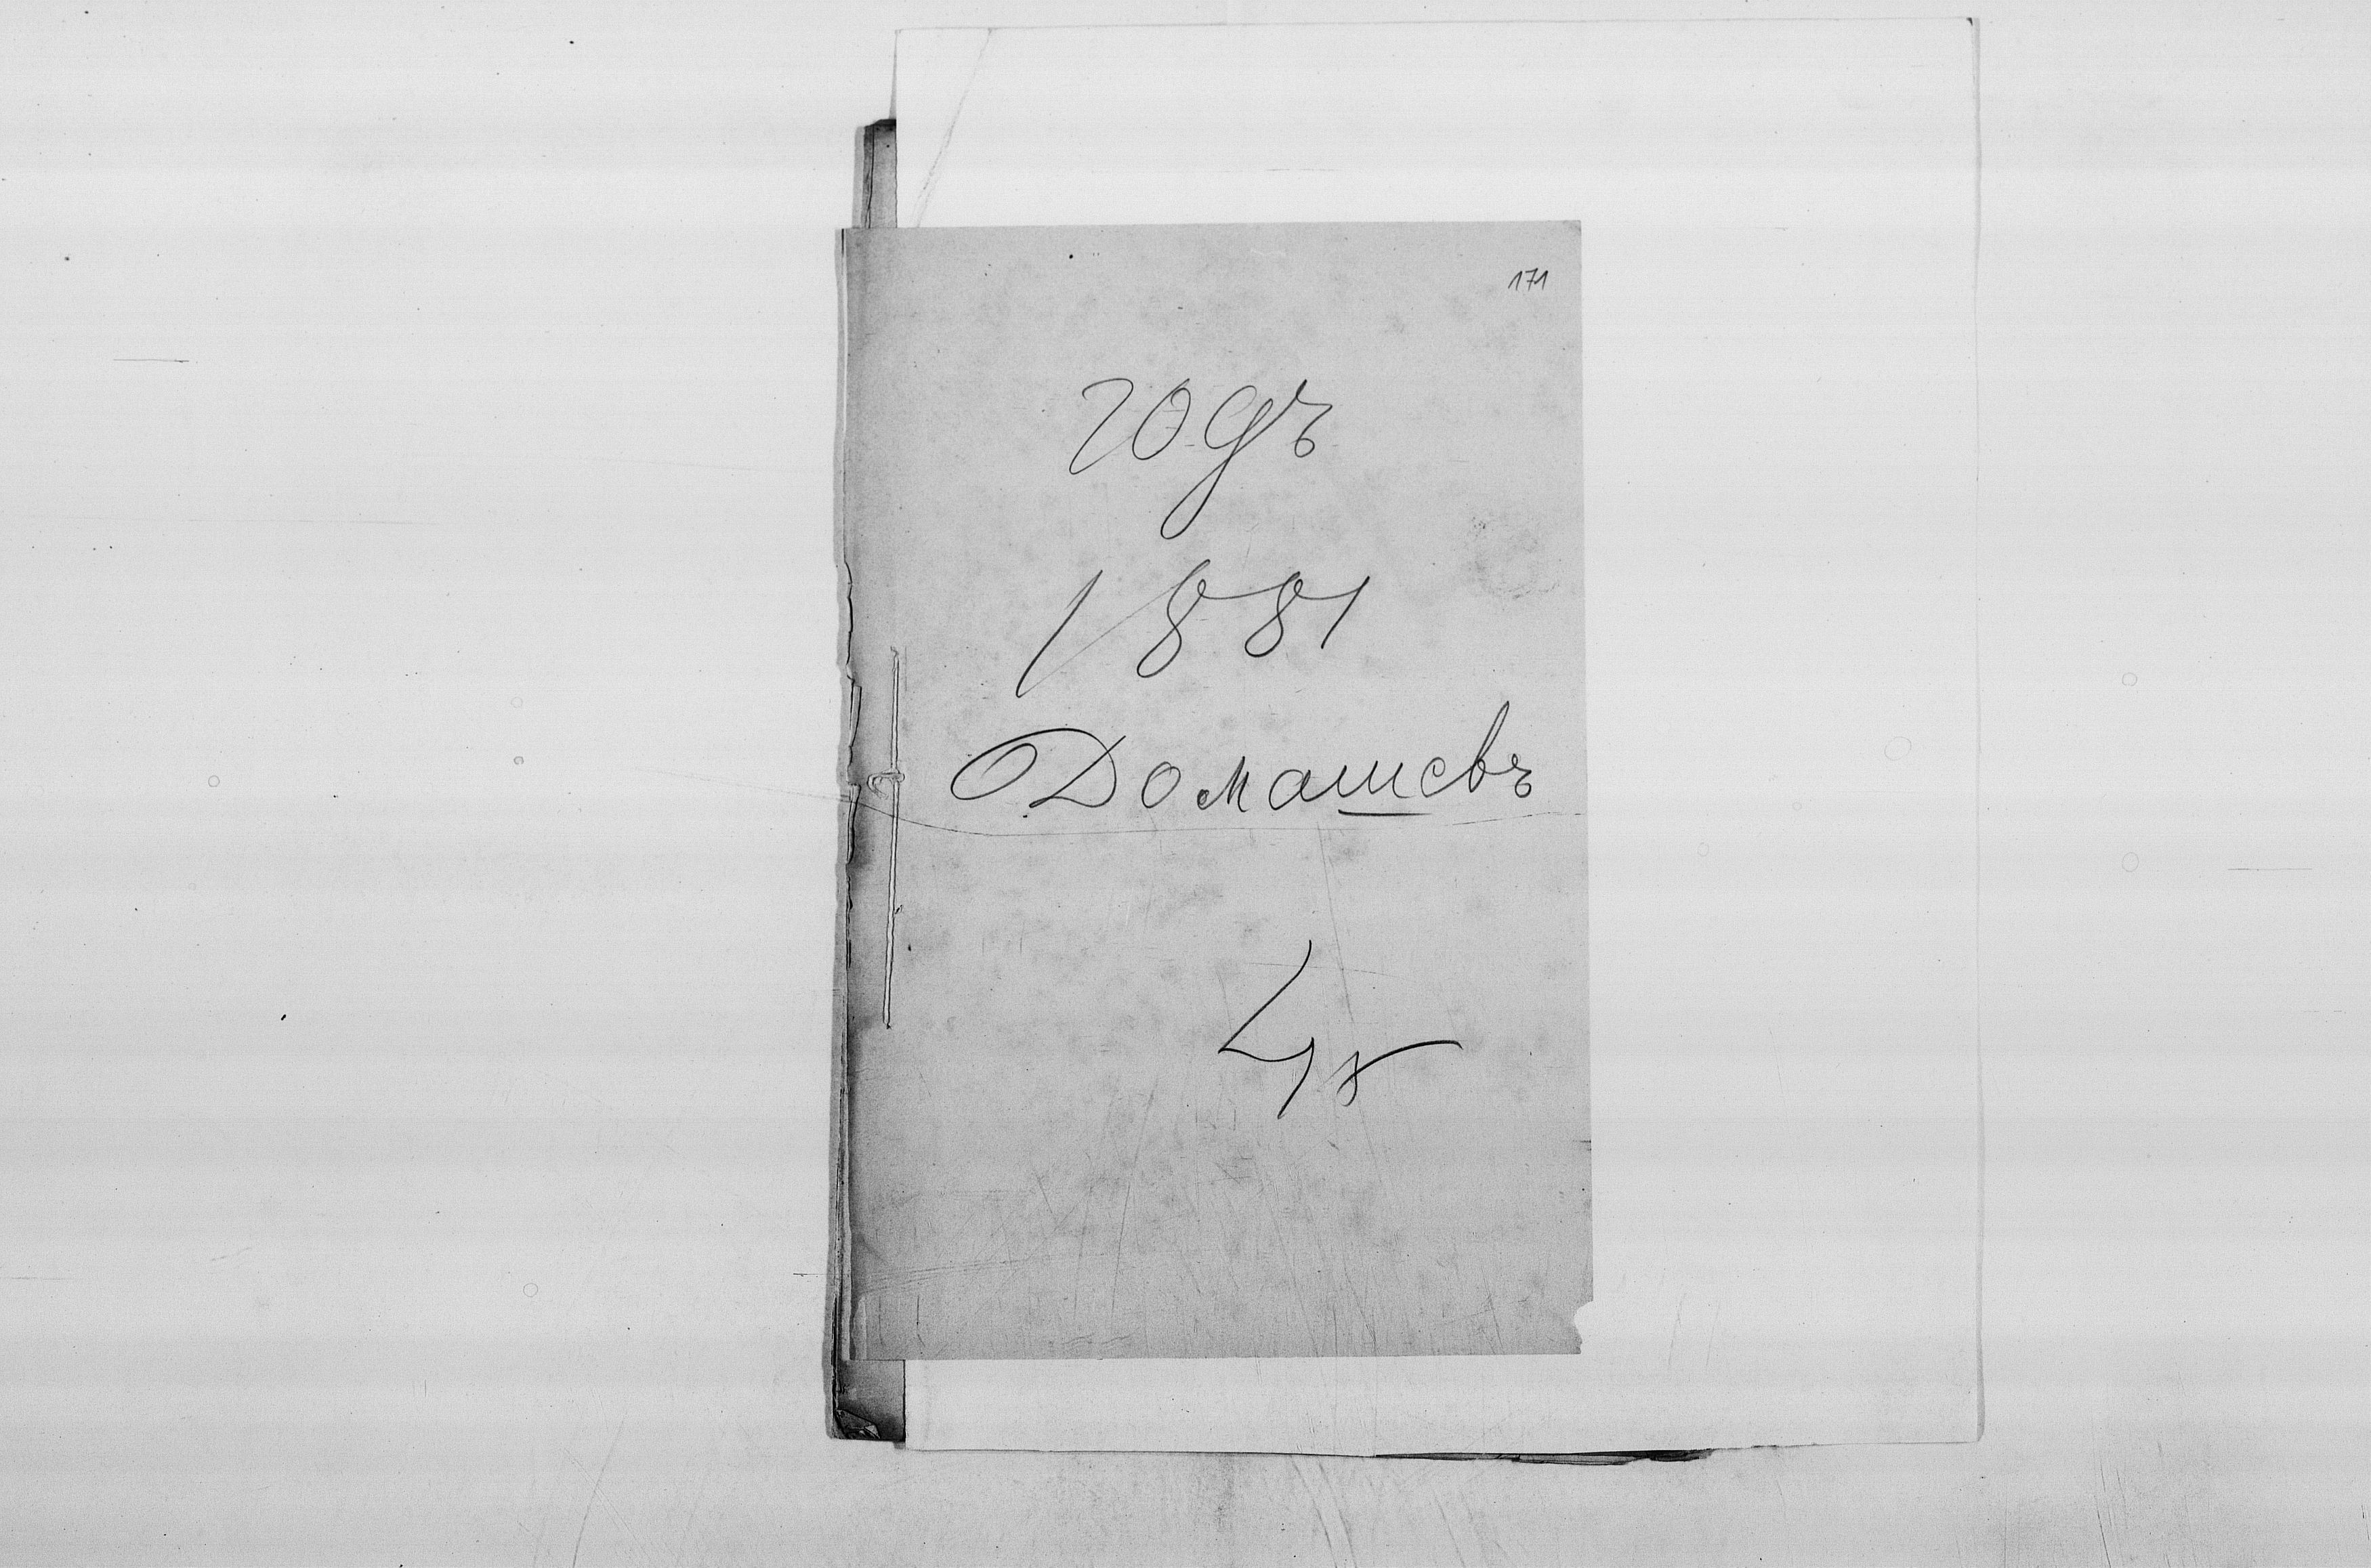 171
годъ
1881
Домашевъ